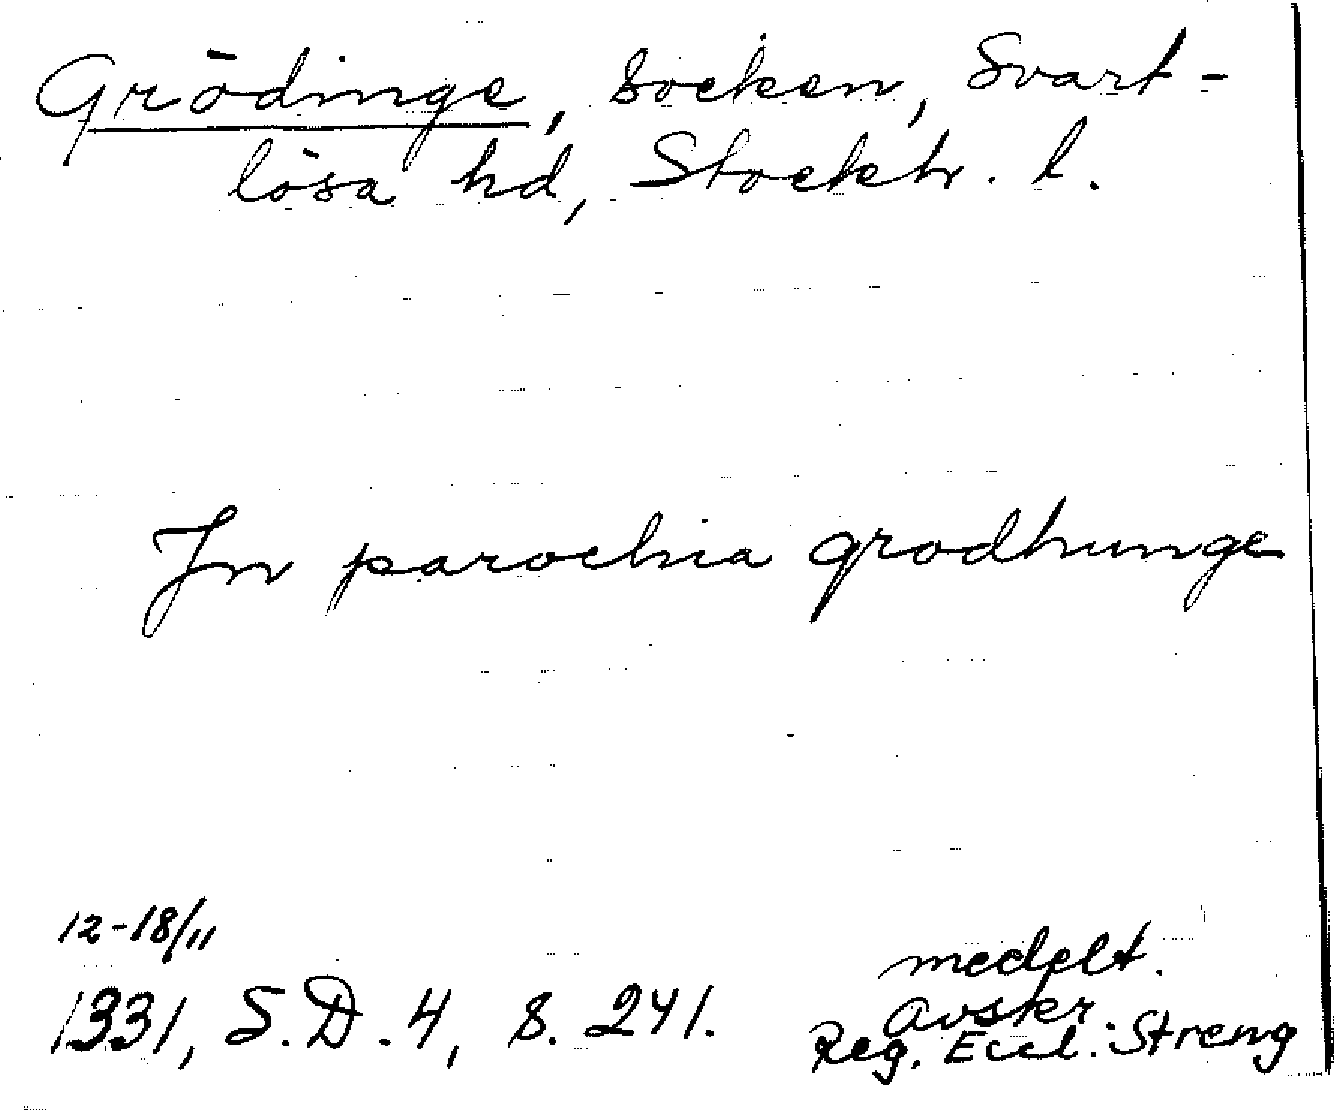 Grödinge, socken, Svart-
lösa hd, Stockh. l.
In parochia grodhunge
12-18/11
1331, S.D. 4, s. 241.
medelt.
avskr.
Reg. Eccl. Streng